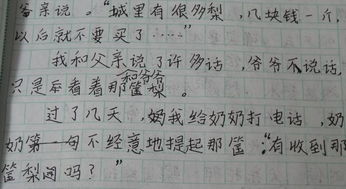 爷亲说。“城里有很多梨，几块钱一斤，
以后就不要买了……”
我和父亲说了许多话，爷爷不说话，
只是看着那筐梨。
和爷爷
过了几天，奶我给奶奶打电话，奶
奶第一句不经意地提起那筐：“有收到那
筐梨阿吗？”